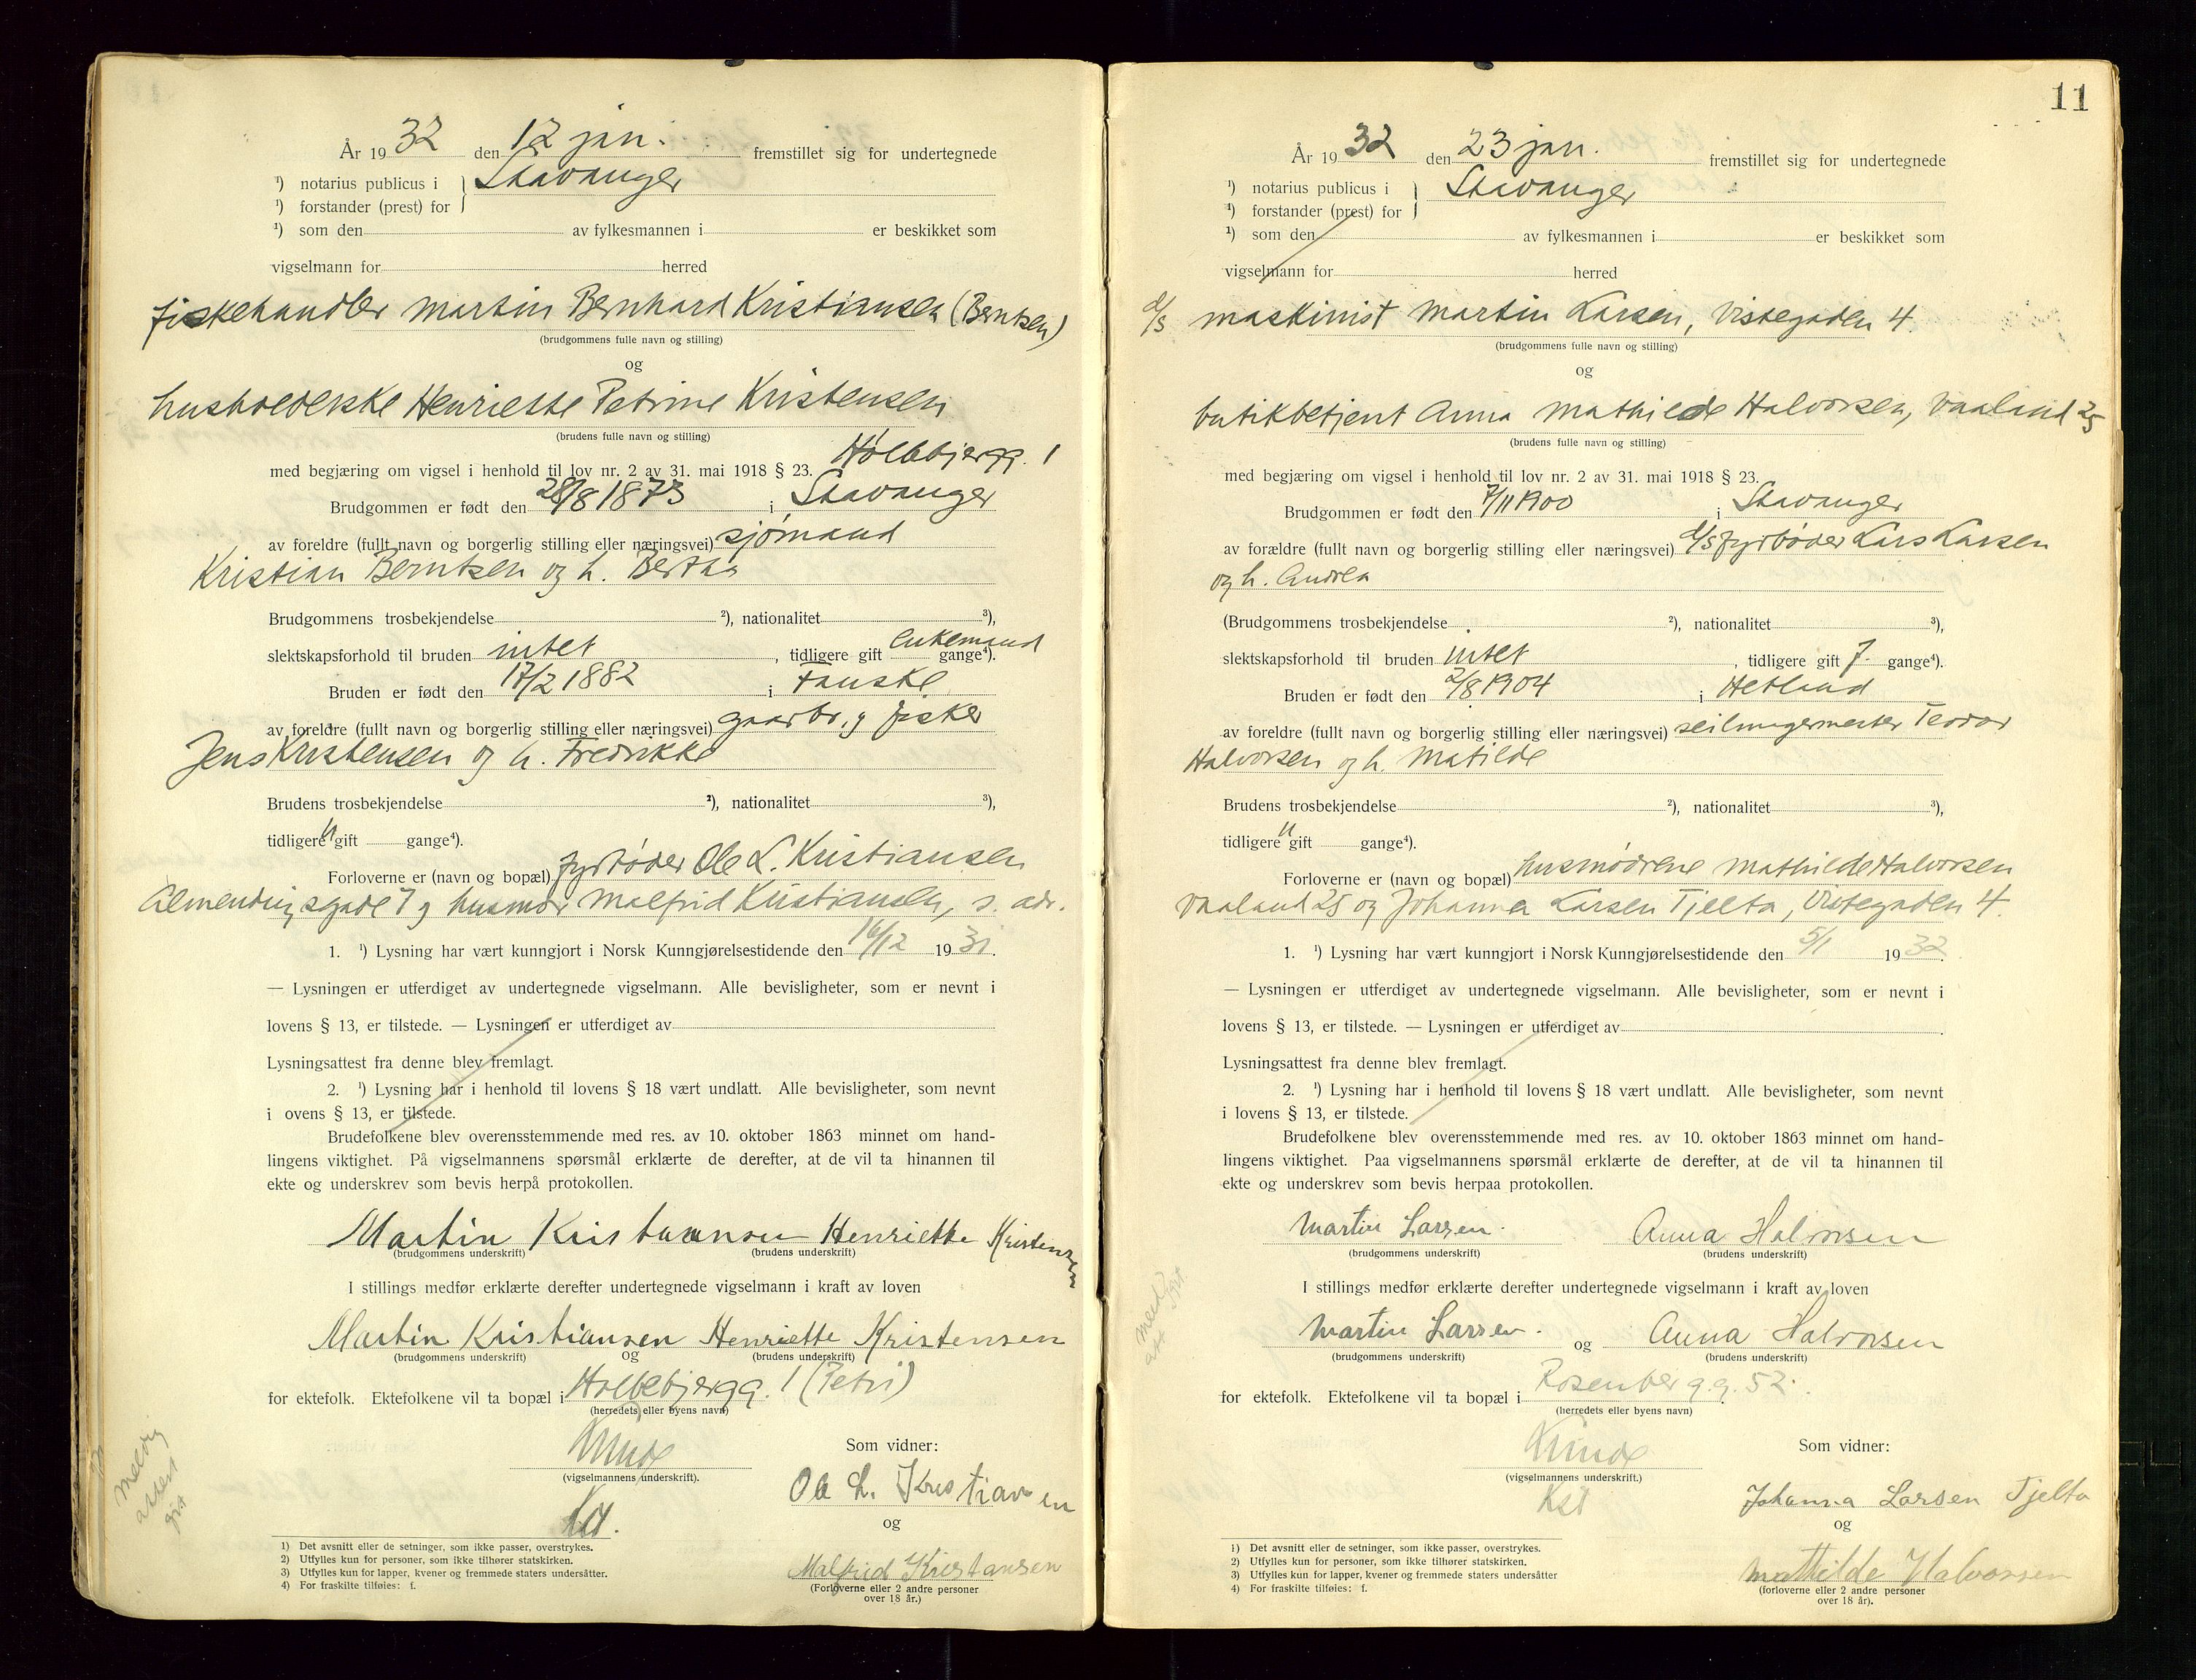 År 1932 den 12 jan. fremstillet sig for undertegnede
¹) notarius publicus i } Stavanger
¹) forstander (prest) for
¹) som den av fylkesmannen i er beskikket som
vigselmann for herred
fiskehandler Martin Bernhard Kristiansen (Berntsen)
(brudgommens fulle navn og stilling)
og
husholderske Henriette Petrine Kristensen
(brudens fulle navn og stilling)
Holbebjergg. 1
med begjæring om vigsel i henhold til lov nr. 2 av 31. mai 1918 § 23.
Brudgommen er født den 28/8 1873 i Stavanger
av foreldre (fullt navn og borgerlig stilling eller næringsvei) sjømand
Kristian Berntsen og h. Berta
Brudgommens trosbekjendelse ²), nationalitet ³),
slektskapsforhold til bruden intet, tidligere gift enkemand gange⁴).
Bruden er født den 17/2 1882 i Fauske
av foreldre (fullt navn og borgerlig stilling eller næringsvei) gaarbr. g fisker
Jens Kristensen og h. Fredrikke
Brudens trosbekjendelse ²), nationalitet ³),
tidligere gift gange⁴).
Forloverne er (navn og bopæl) fyrbøder Ole L. Kristiansen
Almendingsgade 7 g husmor Malfrid Kristiansen, s. adr.
1. ¹) Lysning har vært kunngjort i Norsk Kunngjørelsestidende den 16/12 1931.
— Lysningen er utferdiget av undertegnede vigselmann. Alle bevisligheter, som er nevnt i
lovens § 13, er tilstede. — Lysningen er utferdiget av
Lysningsattest fra denne blev fremlagt.
2. ¹) Lysning har i henhold til lovens § 18 vært undlatt. Alle bevisligheter, som nevnt
i ovens § 13, er tilstede.
Brudefolkene blev overensstemmende med res. av 10. oktober 1863 minnet om hand-
lingens viktighet. På vigselmannens spørsmål erklærte de derefter, at de vil ta hinannen til
ekte og underskrev som bevis herpå protokollen.
Martin Kristiansen Henriette Kristensen
(brudgommens underskrift) (brudens underskrift)
I stillings medfør erklærte derefter undertegnede vigselmann i kraft av loven
Martin Kristiansen Henriette Kristensen
(brudgommens underskrift) og (brudens underskrift)
for ektefolk. Ektefolkene vil ta bopæl i Holbebjergg. 1 (Petri)
(herredets eller byens navn)
Som vidner:
(vigselmannens underskrift).
Ole L. Kristiansen
Kst.
og
Malfrid Kristiansen
(Forloverne eller 2 andre personer
over 18 år.)
melding
attest
gitt
1) Det avsnitt eller de setninger, som ikke passer, overstrykes.
2) Utfylles kun for personer, som ikke tilhører statskirken.
3) Utfylles kun for lapper, kvener og fremmede staters undersåtter.
4) For fraskilte tilføies: f.
11
År 1932 den 23 jan. fremstillet sig for undertegnede
¹) notarius publicus i } Stavanger
¹) forstander (prest) for
¹) som den av fylkesmannen i er beskikket som
vigselmann for herred
d/s maskinist Martin Larsen, Vistegaden 4.
(brudgommens fulle navn og stilling)
og
butikbetjent Anna Mathilde Halvorsen, Vaaland 25
(brudens fulle navn og stilling)
med begjæring om vigsel i henhold til lov nr. 2 av 31. mai 1918 § 23.
Brudgommen er født den 7/11 1900 i Stavanger
av forældre (fullt navn og borgerlig stilling eller næringsvei) d/s fyrbøder Lars Larsen
og h. Andrea
(Brudgommens trosbekjendelse ²), nationalitet ³),
slektskapsforhold til bruden intet, tidligere gift 7. gange⁴).
Bruden er født den 2/8 1904 i Hetland
av foreldre (fullt navn og borgerlig stilling eller næringsvei) seilmagermester Teodor
Halvorsen og h. Matilde
Brudens trosbekjendelse ²), nationalitet ³),
tidligere gift gange⁴).
Forloverne er (navn og bopæl) husmødrene Mathilde Halvorsen
Vaaland 25 og Johanna Larsen Tjelta, Vistegaden 4.
1. ¹) Lysning har vært kunngjort i Norsk Kunngjørelsestidende den 5/1 1932.
— Lysningen er utferdiget av undertegnede vigselmann. Alle bevisligheter, som er nevnt i
lovens § 13, er tilstede. — Lysningen er utferdiget av
Lysningsattest fra denne blev fremlagt.
2. ¹) Lysning har i henhold til lovens § 18 vært undlatt. Alle bevisligheter, som nevnt
i lovens § 13, er tilstede.
Brudefolkene blev overensstemmende med res. av 10. oktober 1863 minnet om hand-
lingens viktighet. Paa vigselmannens spørsmål erklærte de derefter, at de vil ta hinannen til
ekte og underskrev som bevis herpaa protokollen.
Martin Larsen. Anna Halvorsen
(brudgommens underskrift) (brudens underskrift)
I stillings medfør erklærte derefter undertegnede vigselmann i kraft av loven
Martin Larsen. og Anna Halvorsen
(brudgommens underskrift) (brudens underskrift)
for ektefolk. Ektefolkene vil ta bopæl i Rosenberg g. 52.
(herredets eller byens navn)
Som vidner:
(vigselmannens underskrift.)
Kst
Johanna Larsen Tjelta
og
Mathilde Halvorsen
(forloverne eller 2 andre personer
over 18 år).
1) Det avsnitt eller de setninger, som ikke passer, overstrykes.
2) Utfylles kun for personer, som ikke tilhører statskirken.
3) Utfylles kun for lapper, kvener og fremmede staters undersåtter
4) For fraskilte tilføies: f.